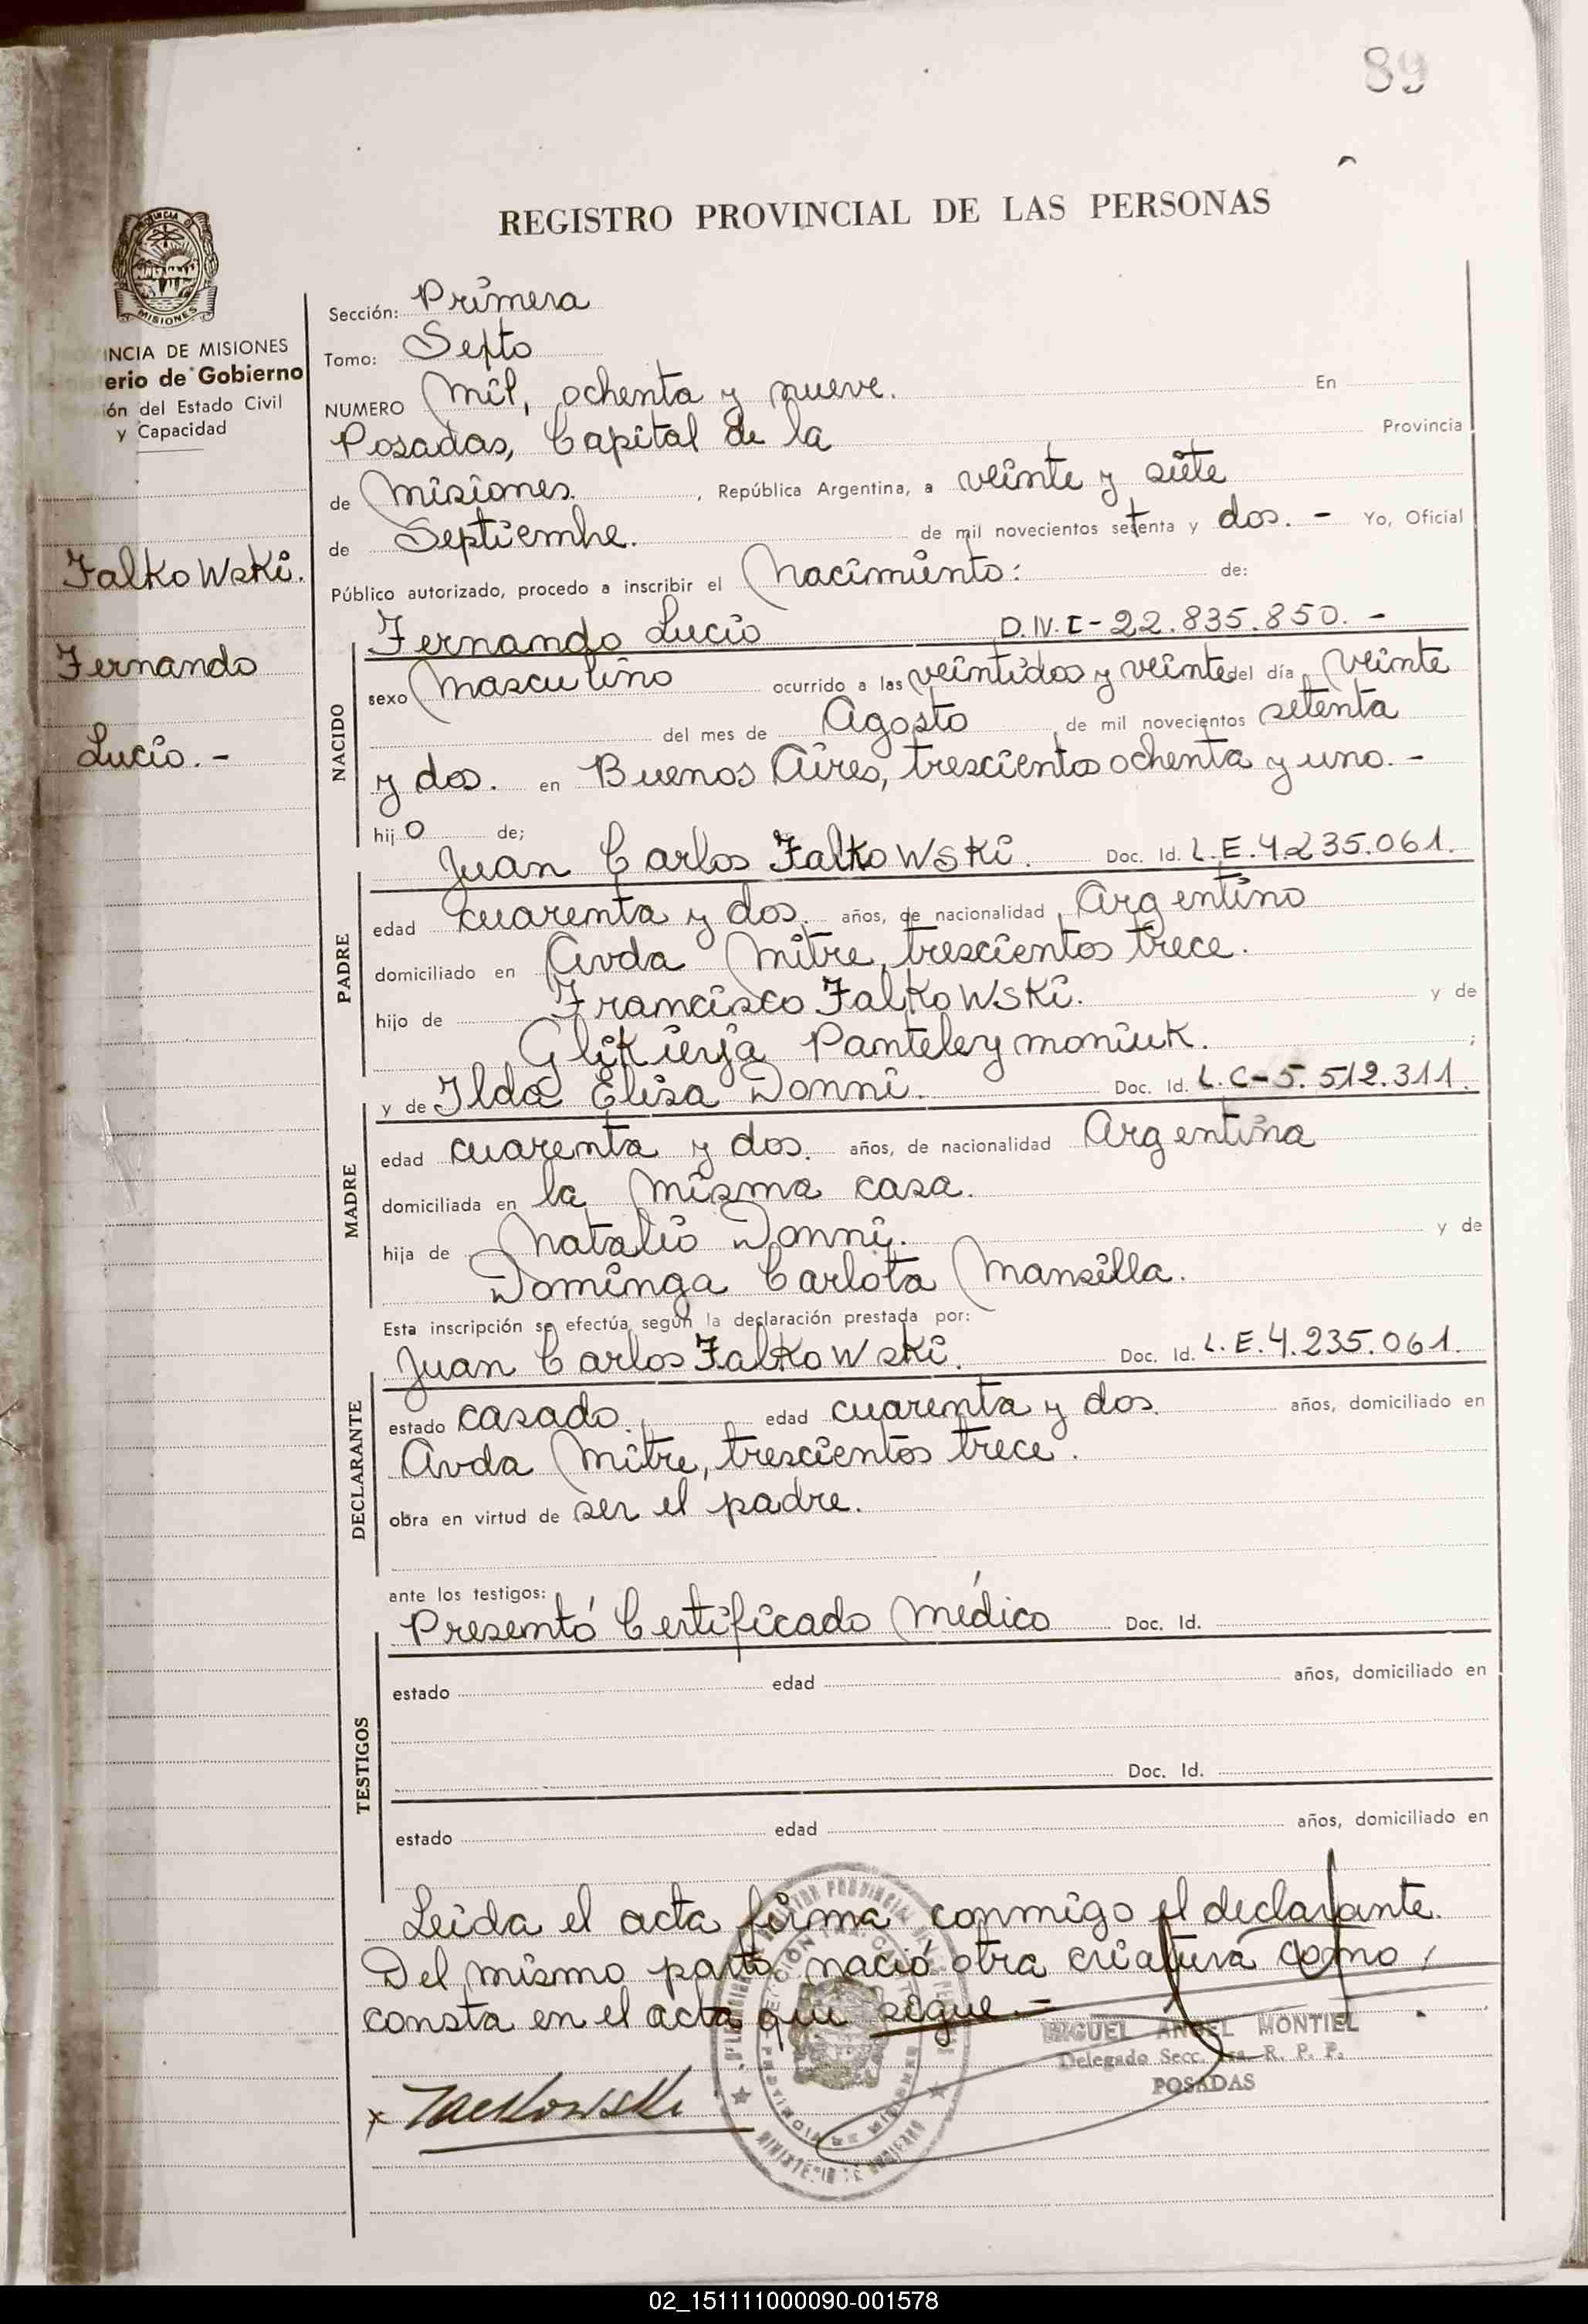 89
REGISTRO PROVINCIAL DE LAS PERSONAS
PROVINCIA DE
MISIONES
INCIA DE MISIONES
erio de Gobierno
ión del Estado Civil
y Capacidad
Falkowski.
Fernando
Lucio. -
Sección: Primera
Tomo: Sexto
NUMERO Mil, ochenta y nueve. En
Posadas, Capital de la Provincia
de Misiones. , República Argentina, a veinte y siete
de Septiembre. de mil novecientos setenta y dos. - Yo, Oficial
Público autorizado, procedo a inscribir el Nacimiento: de:
NACIDO
Fernando Lucio D.N.I-22.835.850. -
sexo Masculino ocurrido a las veintidos y veinte del día veinte
del mes de Agosto de mil novecientos setenta
y dos. en Buenos Aires, trescientos ochenta y uno. -
hijo de;
PADRE
Juan Carlos Falkowski. Doc. Id. L.E.4.235.061.
edad cuarenta y dos. años, de nacionalidad Argentino
domiciliado en Avda Mitre, trescientos trece.
hijo de Francisco Falkowski. y de
Glikierja Panteleymoniuk. ;
MADRE
y de Ilda Elisa Donni. Doc. Id. L.C-5.512.311.
edad cuarenta y dos. años, de nacionalidad Argentina
domiciliada en la misma casa.
hija de Natalio Donni. y de
Dominga Carlota Mansilla.
Esta inscripción se efectúa según la declaración prestada por:
DECLARANTE
Juan Carlos Falkowski. Doc. Id. L.E.4.235.061.
estado casado. edad cuarenta y dos. años, domiciliado en
Avda Mitre, trescientos trece.
obra en virtud de ser el padre.
ante los testigos:
TESTIGOS
Presentó Certificado Médico Doc. Id.
estado edad años, domiciliado en
Doc. Id.
estado edad años, domiciliado en
Leida el acta firma conmigo el declarante.
Del mismo parto, nació otra criatura como
consta en el acta que sigue. -
MIGUEL ANGEL MONTIEL
Delegado Secc. 1ra. R. P. P.
POSADAS
x Falkowski
PROVINCIA DE MISIONES
MINISTERIO DE GOBIERNO
02_151111000090-001578